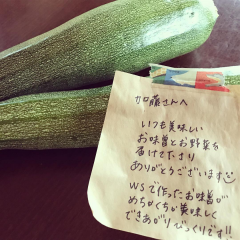 加藤さんへ
いつも美味しい
お味噌とお野菜を
届けて下さり
ありがとうございます
WSで作ったお味噌が
めちゃくちゃ美味しく
できあがりびっくりです!!